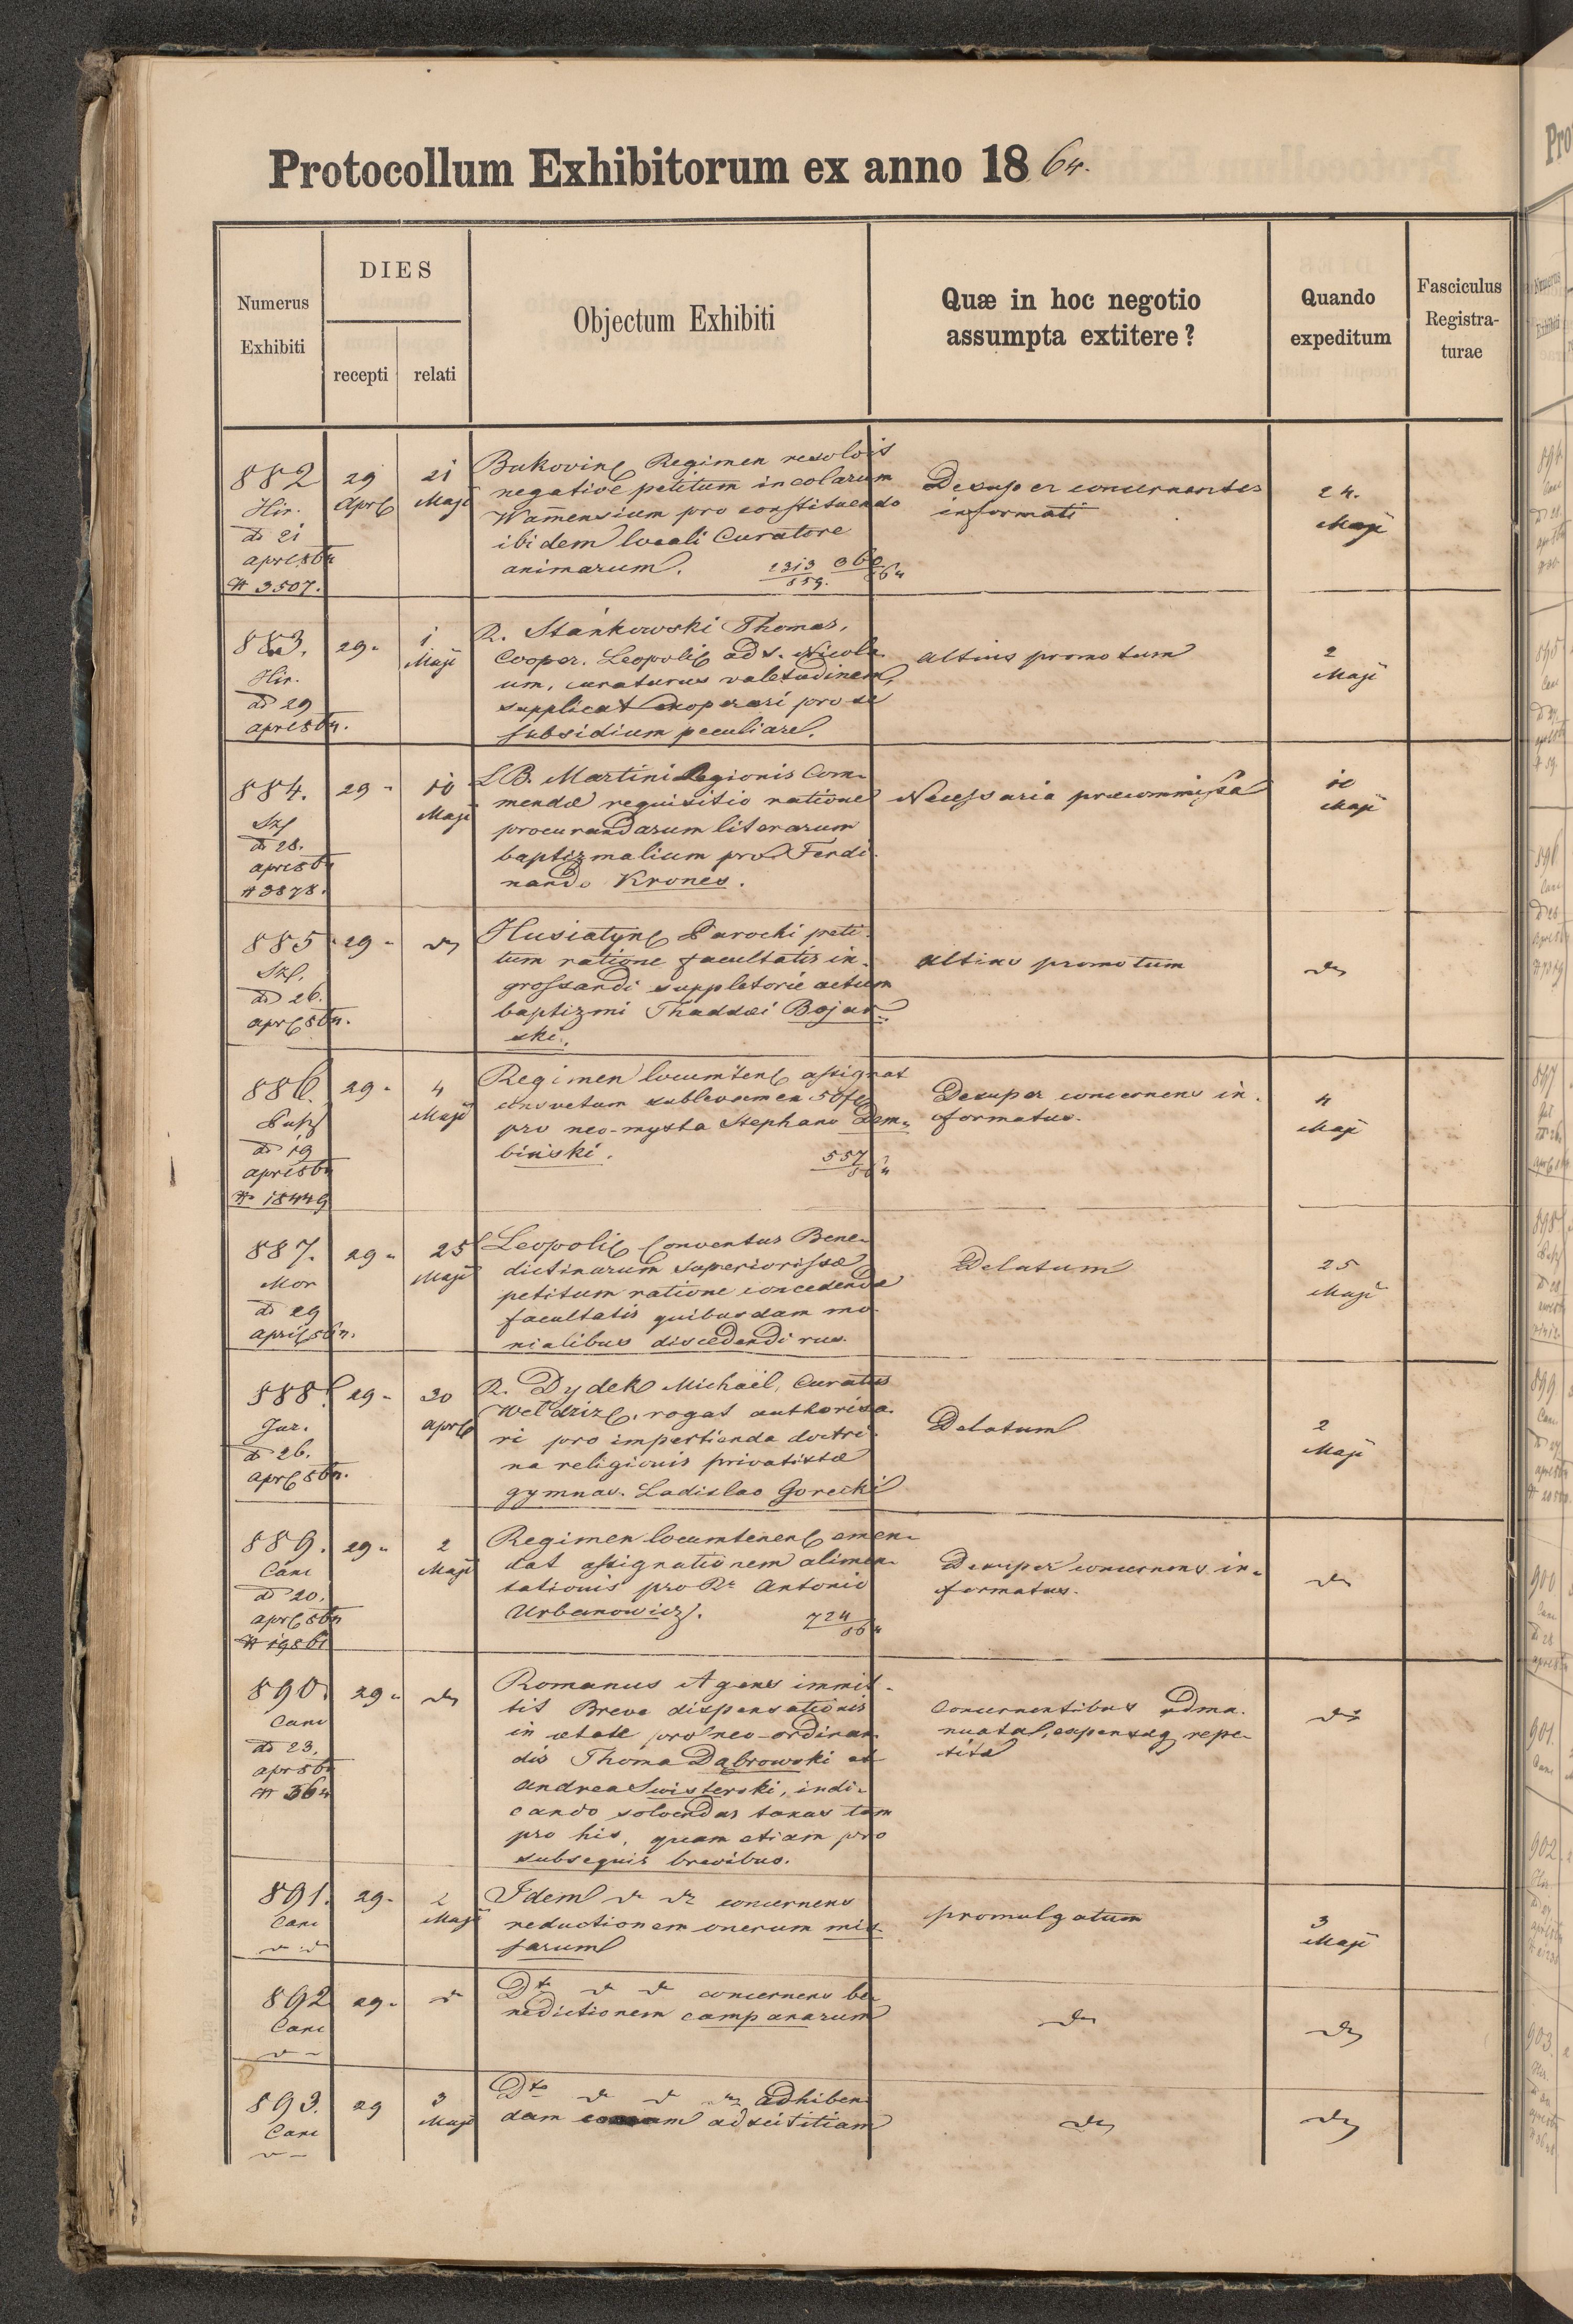 Protocollum Exhibitorum ex anno 1864.
Numerus
Exhibiti
DIES
recepti
relati
Objectum Exhibiti
Quæ in hoc negotio
assumpta extitere?
Quando
expeditum
Fasciculus
Registra-
turae
882
Hir.
dd 21
apr 864
# 3507.
29
Apr
21
Maji
Bukovin Regimen resolvit
negative petitum incolarum
Wamensium pro constituendo
ibidem locali Curatore
animarum. 2313/859. 360/864
Desuper concernentes
informati
24.
Maji
883.
Hir.
dd 29
apr 864.
29.
1
Maji
R. Stankowski Thomas,
Cooper. Leopoli ad s. Nicola
um, curaturus valetudinem,
supplicat exoperari pro se
subsidium peculiare.
altius promotum
2
Maji
884.
dd 28.
apr 864
# 3878.
29 -
10
Maji
L.B. Martini Legionis Com-
mendæ requisitio ratione
procurandarum literarum
baptizmalium pro Ferdi-
nando Krones.
Necessaria præcommissa
10
Maji
885
dd 26.
apr 864.
29 -
do
Husiatyn Parochi peti-
tum ratione facultatis in-
grossandi suppletorie actum
baptizmi Thaddæi Bojar-
ski.
altius promotum
do
886.
dd 19
apr 864
# 18449
29 -
4
Maji
Regimen locumten assignat
consvetum sublevamen 50 fl
pro neo-mysta Stephano Dem-
biński. 557/864
Desuper concernens in-
formatus.
4
Maji
887.
Mor
dd 29
april 864.
29 -
25
Maji
Leopoli Conventus Bene-
dictinarum superiorissæ
petitum ratione concedendæ
facultatis quibusdam mo-
nialibus discedendi rus.
Delatum
25
Maji
888.
Jur.
dd 26.
apr 864.
29 -
30
apr
R. Dydek Michaël, Curatus
Weldziz, rogat authorisa-
ri pro impertienda doctri-
na religionis privatistæ
gymnas. Ladislao Gorecki
Delatum
2
Maji
889.
Canc
dd 20.
apr 864
# 19861
29 -
2
Maji
Regimen locumtenen emen-
dat assignationem alimen-
tationis pro R. Antonio
Urbanowicz. 724/864
Desuper concernens in-
formatus.
do
890.
Canc
dd 23.
apr 864
# 364
29 -
do
Romanus Agens immit-
tit Breve dispensationis
in ætate pro neo-ordinan
dis Thoma Dąbrowski et
Andrea Swisterski, indi-
cando solvendas taxas tam
pro his, quam etiam pro
subsequis brevibus.
Concernentibus adma-
nuatal, expensaeq repe-
titæ
do
891.
Canc
29 -
2
Maji
Idem do do concernens
reductionem onerum mis-
sarum
promulgatum
3
Maji
892
Canc
29 -
do
Dto do do concernens be-
nedictionem campanarum
do
do
893.
Canc
29
3
Maji
Dto do do adhiben-
dam adscititiam
do
do